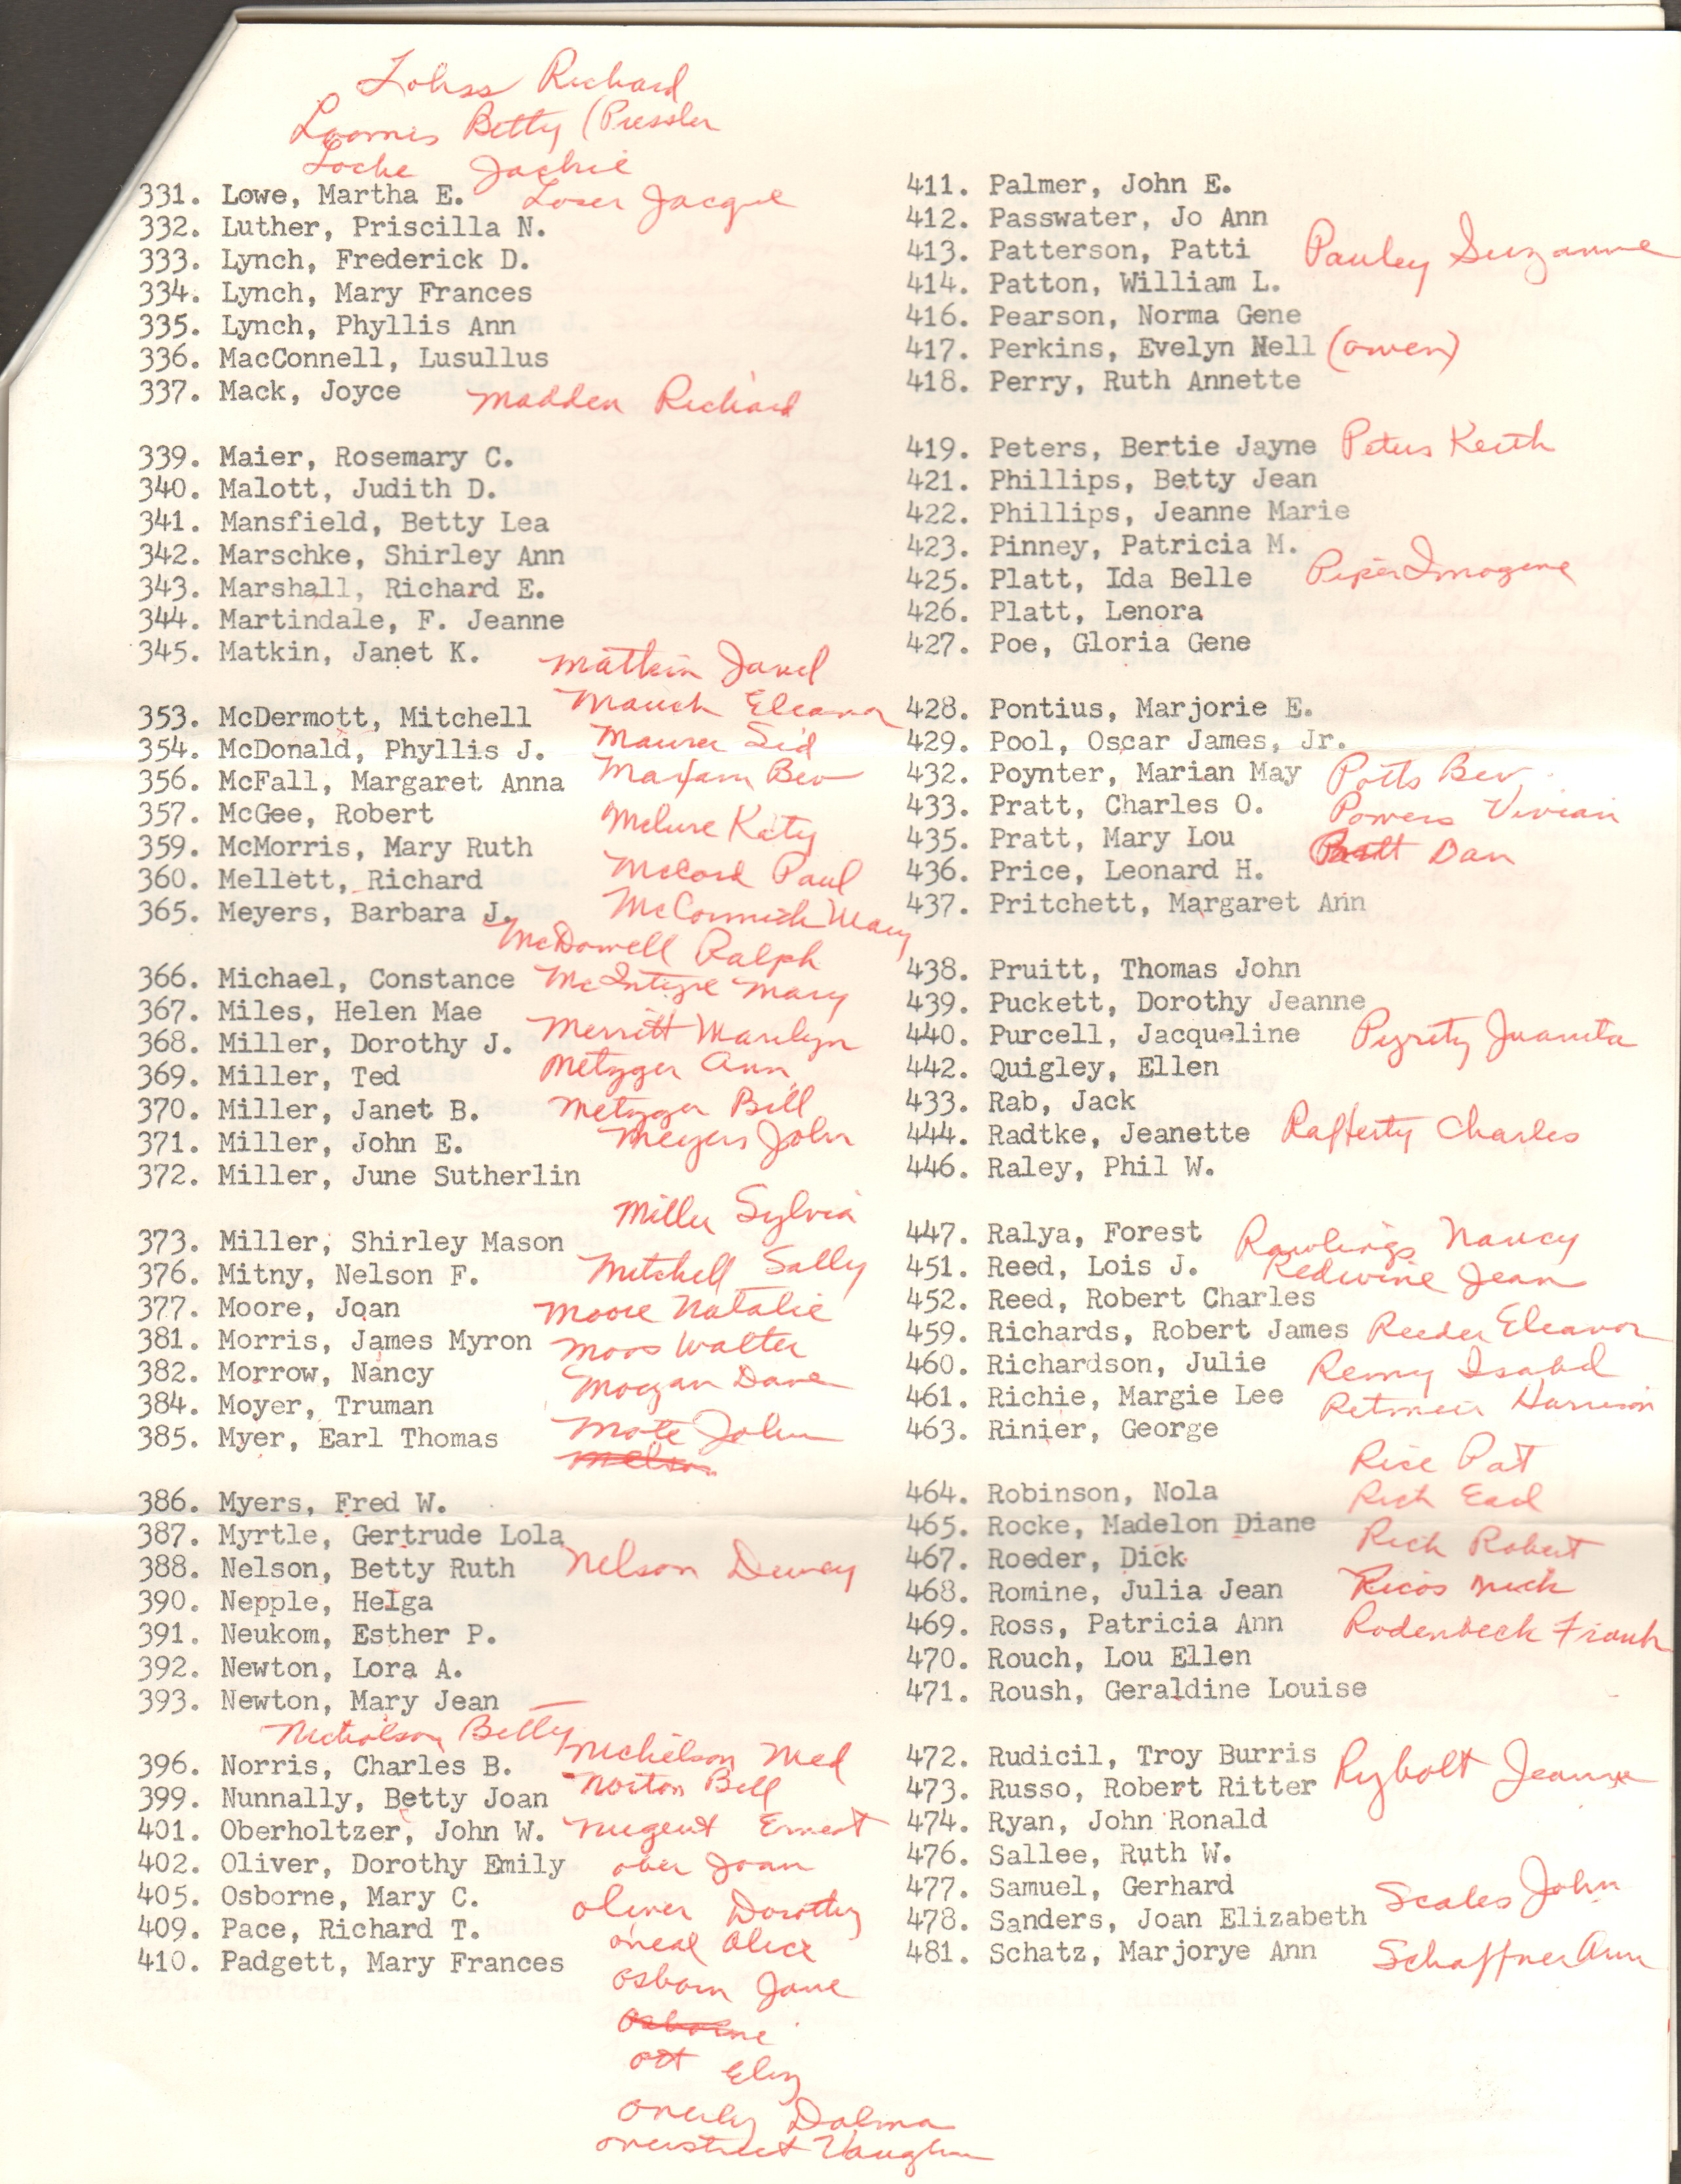 Lohss Richard
Loomis Betty (Pressler
Locke Jackie
331. Lowe, Martha E. Loser Jacque
332. Luther, Priscilla N.
333. Lynch, Frederick D.
334. Lynch, Mary Frances
335. Lynch, Phyllis Ann
336. MacConnell, Lusullus
337. Mack, Joyce Madden Richard
339. Maier, Rosemary C.
340. Malott, Judith D.
341. Mansfield, Betty Lea
342. Marschke, Shirley Ann
343. Marshall, Richard E.
344. Martindale, F. Jeanne
345. Matkin, Janet K. Matkin Janet
Mauck Eleanor
353. McDermott, Mitchell
354. McDonald, Phyllis J. Maurer Sid
356. McFall, Margaret Anna Maxam Bev
357. McGee, Robert McLure Katy
359. McMorris, Mary Ruth
360. Mellett, Richard McCord Paul
365. Meyers, Barbara J. McCormick Mary
McDowell Ralph
366. Michael, Constance McIntyre Mary
367. Miles, Helen Mae
368. Miller, Dorothy J. Merritt Marilyn
369. Miller, Ted Metzger Ann
370. Miller, Janet B. Metzger Bill
371. Miller, John E. Meyers John
372. Miller, June Sutherlin
Miller Sylvia
373. Miller, Shirley Mason
376. Mitny, Nelson F. Mitchell Sally
377. Moore, Joan Moore Natalie
381. Morris, James Myron Moos Walter
382. Morrow, Nancy Morgan Dave
384. Moyer, Truman
385. Myer, Earl Thomas Mote John
386. Myers, Fred W.
387. Myrtle, Gertrude Lola
388. Nelson, Betty Ruth Nelson Dewey
390. Nepple, Helga
391. Neukom, Esther P.
392. Newton, Lora A.
393. Newton, Mary Jean
Nicholson Betty
396. Norris, Charles B. Nichelson Med
399. Nunnally, Betty Joan Norton Bill
401. Oberholtzer, John W. Nugent Ernest
402. Oliver, Dorothy Emily Ober Joan
405. Osborne, Mary C. Oliver Dorothy
409. Pace, Richard T. Oneal Alice
410. Padgett, Mary Frances
Osborn Jane
Osborne
Ott Eliz
Overly Dalma
Overstreet Vaughn
411. Palmer, John E.
412. Passwater, Jo Ann
413. Patterson, Patti Pauley Suzanne
414. Patton, William L.
416. Pearson, Norma Gene
417. Perkins, Evelyn Nell (Owen)
418. Perry, Ruth Annette
419. Peters, Bertie Jayne Peters Keith
421. Phillips, Betty Jean
422. Phillips, Jeanne Marie
423. Pinney, Patricia M.
425. Platt, Ida Belle Piper Imogene
426. Platt, Lenora
427. Poe, Gloria Gene
428. Pontius, Marjorie E.
429. Pool, Oscar James, Jr.
432. Poynter, Marian May Potts Bev.
433. Pratt, Charles O. Powers Vivian
435. Pratt, Mary Lou Pratt Dan
436. Price, Leonard H.
437. Pritchett, Margaret Ann
438. Pruitt, Thomas John
439. Puckett, Dorothy Jeanne
440. Purcell, Jacqueline Pyrity Juanita
442. Quigley, Ellen
433. Rab, Jack
444. Radtke, Jeanette Rafferty Charles
446. Raley, Phil W.
447. Ralya, Forest Rawlings Nancy
451. Reed, Lois J. Redwine Jean
452. Reed, Robert Charles
459. Richards, Robert James Reeder Eleanor
460. Richardson, Julie Remy Isabel
461. Richie, Margie Lee Retmeir Harrison
463. Rinier, George
Rice Pat
464. Robinson, Nola Rich Earl
465. Rocke, Madelon Diane Rich Robert
467. Roeder, Dick
468. Romine, Julia Jean Ricos Nick
469. Ross, Patricia Ann Rodenbeck Frank
470. Rouch, Lou Ellen
471. Roush, Geraldine Louise
472. Rudicil, Troy Burris Rybolt Jeanne
473. Russo, Robert Ritter
474. Ryan, John Ronald
476. Sallee, Ruth W.
477. Samuel, Gerhard Scales John
478. Sanders, Joan Elizabeth
481. Schatz, Marjorye Ann Schaffner Ann